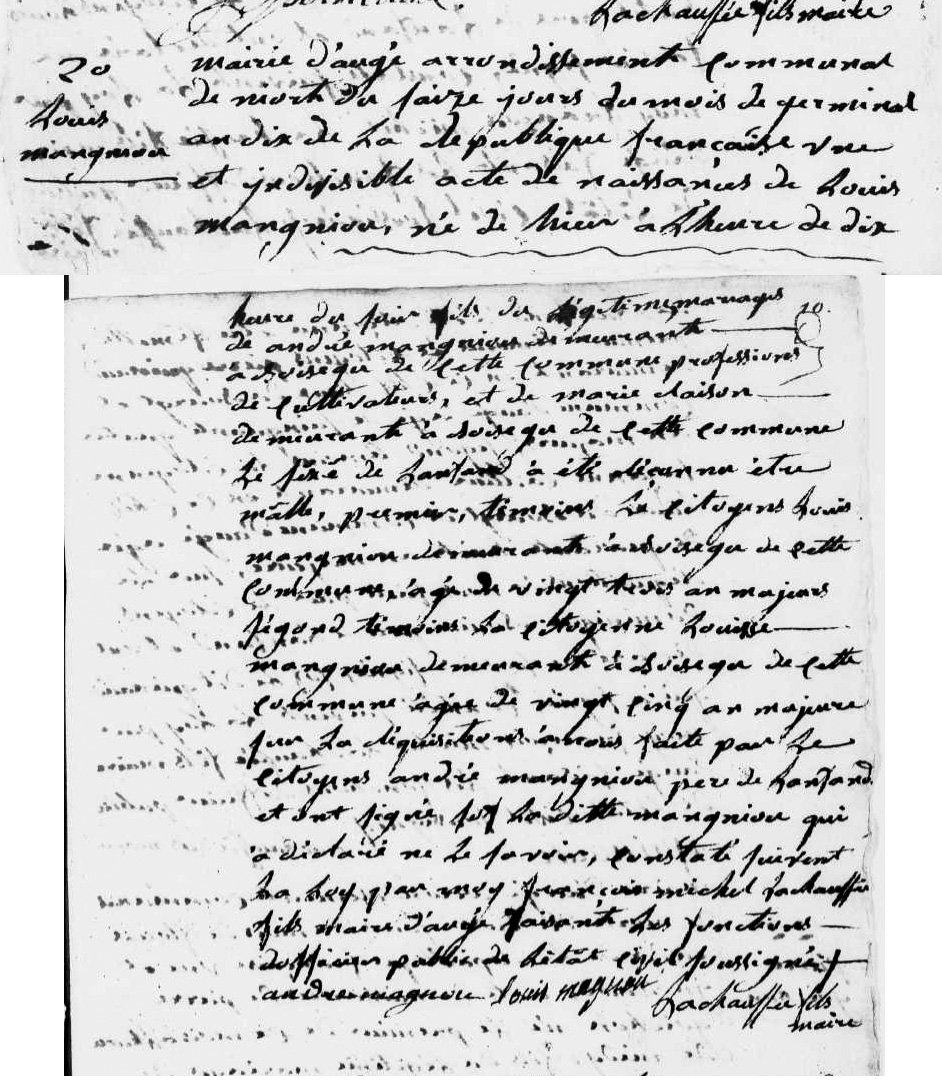 Lachauffie fils maire
20
Louis
mangniou
mairie d'augé arrondissement communal
de niort du saize jours du mois de germinal
an dix de La republique francaise vne
et jndivisible acte de naissances de Louis
mangniou, né de hier à L'heure de dix
heure du soir fils du légitime mariages
de andré mangniou demeurante
a de cette commune professions
de cultivateurs, et de marie
demeurante à de cette commune
Le sexe de Lanfand à été reconnu être
mâlle, premier, témoins Le citoyens Louis
mangniou demeurante à de cette
commune, agé de vingt trois an majeurs
ségond témoins La citoyenne Louisse
mangniou demeurante à de cette
commune agée de vingt cinq an majeure
sur La réquisitions à nous faite par Le
citoyens andré mangniou pere de Lanfand
et ont signé La ditte mangniou qui
a déclaré ne Le savoir, constaté suivent
La Loy par moy françois michel Lachauffie
fils maire d'augé faisante Les fonctions
dofficier public de Létat civil soussigné
andre magnou Louis magnou Lachauffie fils
maire